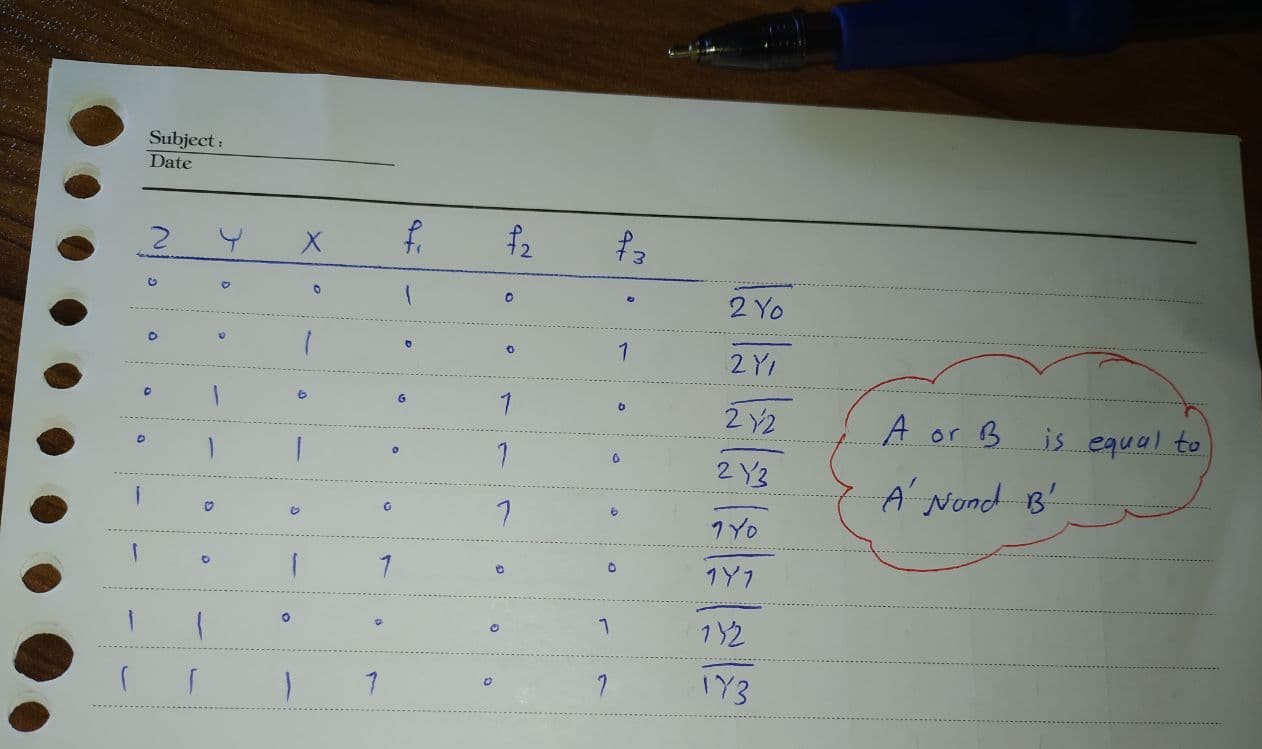 Subject:
Date
Z Y X f₁ f₂ f₃
0 0 0 1 0 0 2Y0
0 0 1 0 0 1 2Y1
0 1 0 0 1 0 2Y2
0 1 1 0 1 0 2Y3
1 0 0 0 1 0 1Y0
1 0 1 1 0 0 1Y1
1 1 0 0 0 1 1Y2
1 1 1 1 0 1 1Y3
A or B is equal to
A' Nand B'